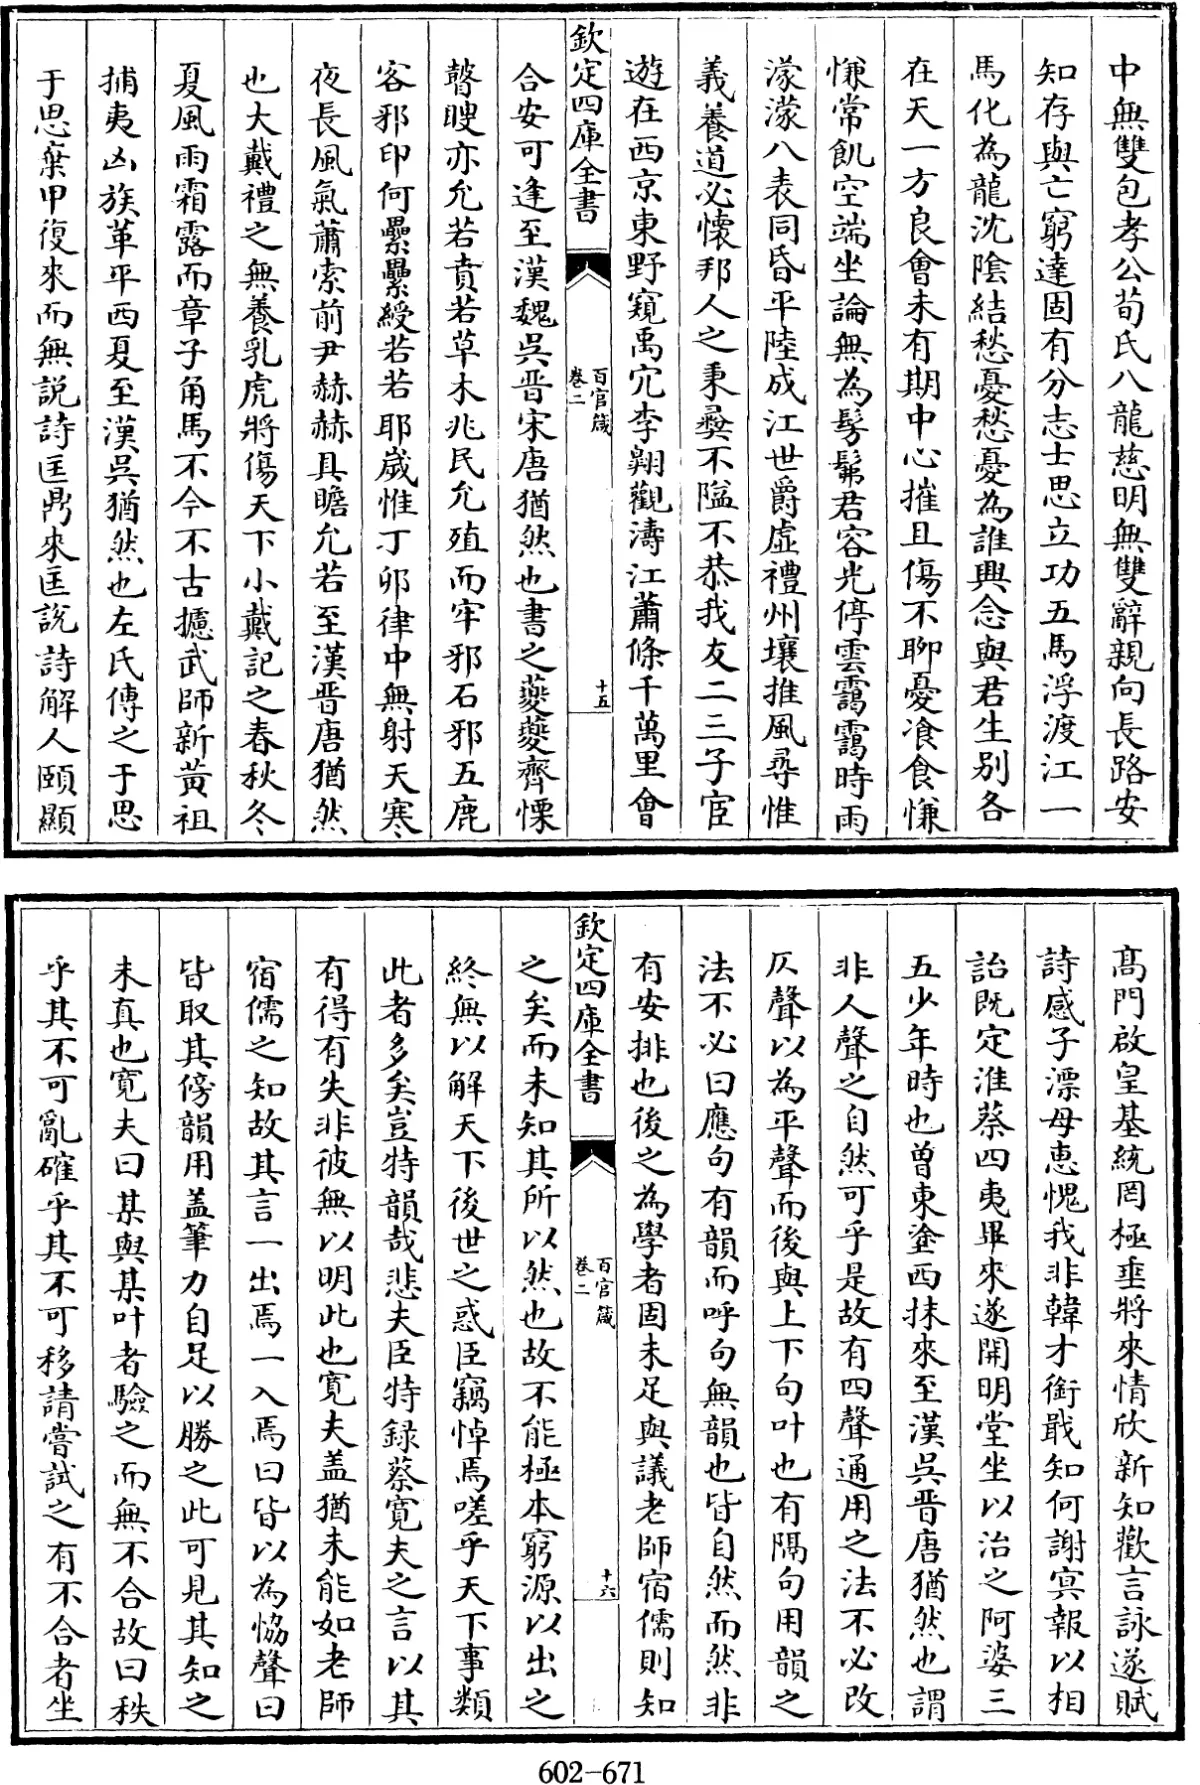 中無雙包孝公荀氏八龍慈明無雙辭親向長路安
知存與亡窮達固有分志士思立功五馬浮渡江一
馬化為龍沈陰結愁憂愁憂為誰興念與君生別各
在天一方良會未有期中心摧且傷不聊憂飡食慊
慊常飢空端坐論無為髣髴君容光停雲靄靄時雨
濛濛八表同昏平陸成江世爵虛禮州壤推風尋惟
義養道必懷邦人之秉彜不隘不恭我友二三子宦
遊在西京東野窺禹穴李翶觀濤江蕭條千萬里會
欽定四庫全書
百官箴
卷二
十五
合安可逢至漢魏吳晋宋唐猶然也書之夔夔齊慄
瞽瞍亦允若賁若草木兆民允殖而牢邪石邪五鹿
客邪印何纍纍綬若若耶嵗惟丁卯律中無射天寒
夜長風氣蕭索前尹赫赫具瞻允若至漢晋唐猶然
也大戴禮之無養乳虎將傷天下小戴記之春秋冬
夏風雨霜露而章子角馬不今不古攄武師新黄祖
捕夷凶族革平西夏至漢吳猶然也左氏傳之于思
于思棄甲復來而無説詩匡鼎來匡説詩解人頤顯
髙門啟皇基統罔極垂將來情欣新知歡言詠遂賦
詩感子漂母恵愧我非韓才銜戢知何謝㝠報以相
詒既定淮蔡四夷畢來遂開明堂坐以治之阿婆三
五少年時也曽東塗西抹來至漢吳晋唐猶然也謂
非人聲之自然可乎是故有四聲通用之法不必改
仄聲以為平聲而後與上下句叶也有隔句用韻之
法不必曰應句有韻而呼句無韻也皆自然而然非
有安排也後之為學者固未足與議老師宿儒則知
欽定四庫全書
百官箴
卷二
十六
之矣而未知其所以然也故不能極本窮源以出之
終無以解天下後世之惑臣竊悼焉嗟乎天下事類
此者多矣豈特韻哉悲夫臣特録蔡寛夫之言以其
有得有失非彼無以明此也寛夫盖猶未能如老師
宿儒之知故其言一出焉一入焉曰皆以為恊聲曰
皆取其傍韻用盖筆力自足以勝之此可見其知之
未真也寛夫曰某與某叶者驗之而無不合故曰秩
乎其不可亂確乎其不可移請嘗試之有不合者坐
602-671